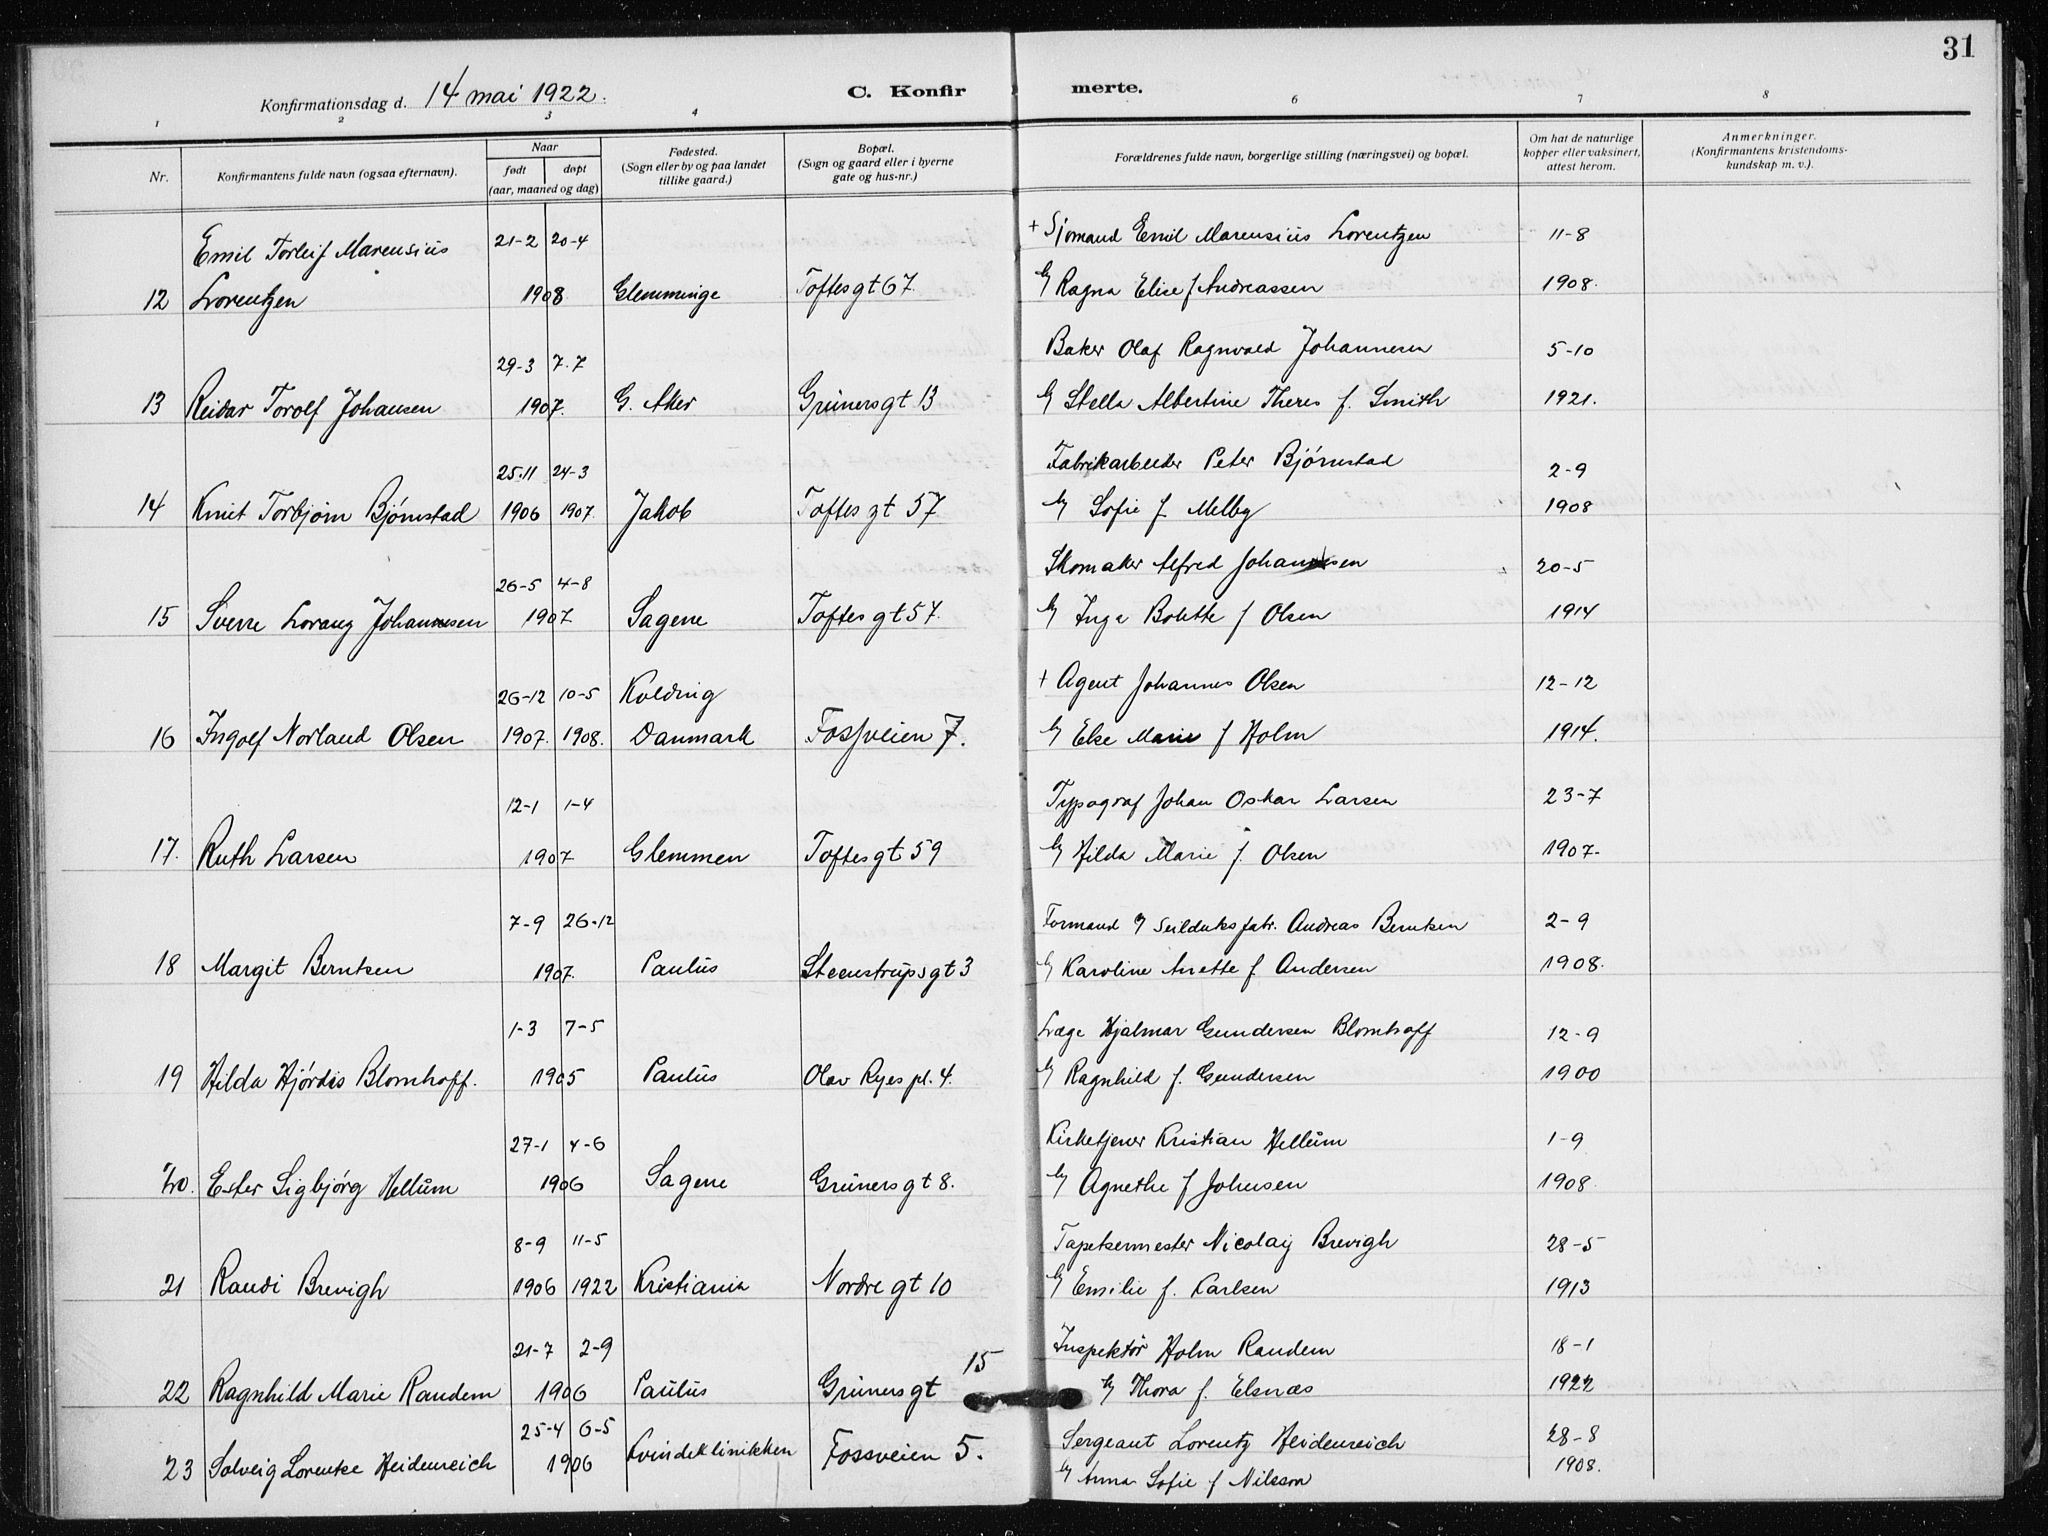 31
Konfirmationsdag d. 14 mai 1922.
C. Konfir merte.
1 2 3 4 6 7 8
Nr. Konfirmantens fulde navn (ogsaa efternavn). Naar født døpt (aar, maaned og dag) Fødested. (Sogn eller by og paa landet tillike gaard.) Bopæl. (Sogn og gaard eller i byerne gate og hus-nr.) Forældrenes fulde navn, borgerlige stilling (næringsvei) og bopæl. Om hat de naturlige kopper eller vaksinert, attest herom. Anmerkninger. (Konfirmantens kristendoms-kundskap m. v.).
Emil Torleif Marensius 21-2 20-4 + Sjømand Emil Marensius Lorentzen 11-8
12 Lorentzen 1908 Glemminge Toftesgt 67. Ragna Elise f Andreassen 1908.
29-3 7.7 Baker Olaf Ragnvald Johannesen 5-10
13 Reidar Torolf Johansen 1907. G. Aker Grünersgt 13 Stella Albertine Theres f. Smith 1921.
25.11 24-3 Fabrikarbeider Peter Bjørnstad 2-9
14 Knut Torbjørn Bjørnstad 1906 1907. Jakob Toftes gt 57 Sofie f. Melby 1908
26-5 4-8 Skomaker Alfred Johansen 20-5
15 Sverre Lorang Johannesen 1907 Sagene Toftesgt 57. Inga Bolette f Olsen 1914
26-12 10-5 Kolding + Agent Johannes Olsen 12-12
16 Ingolf Norland Olsen 1907. 1908. Danmark Fossveien 7. Else Marie f Holm 1914.
12-1 1-4 Typograf Johan Oskar Larsen 23-7
17. Ruth Larsen 1907 Glemmen Toftesgt 59 Hilda Marie f. Olsen 1907.
7-9 26-12 Formand Seilduksfabr. Andreas Berntsen 2-9
18 Margit Berntsen 1907. Paulus Steenstrupsgt 3 Karoline Anette f Andersen 1908.
1-3 7-5 Læge Hjalmar Gundersen Blomhoff 12-9
19 Hilda Hjørdis Blomhoff. 1905 Paulus Olav Ryes pl. 4. Ragnhild f. Gundersen 1900
27-1 4-6 Kirketjener Kristian Hellum 1-9
20. Ester Sigbjørg Hellum 1906 Sagene Grünersgt 8. Agnethe f Johnsen 1908.
8-9 11-5 Tapetsermester Nicolaij Brevigh 28-5
21 Randi Brevigh 1906 1922 Kristiania Nordre gt 10 Emilie f. Carlsen 1913
21-7 2-9 15 Inspektør Holm Randem 18-1
22 Ragnhild Marie Randem 1906 Paulus Grünersgt Thora f. Elsnæs 1922
25-4 6-5 Sergeant Lorentz Heidenreich 28-8
23 Solveig Lorentze Heidenreich 1906 Kvindeklinikken Fossveien 5. Anna Sofie f Nilsson 1908.